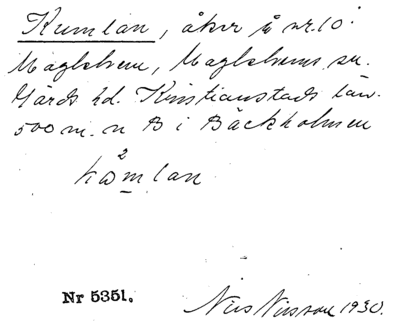 Kumlan, åker å nr. 10
Maglehem, Maglehems sn.
Gärds hd. Kristianstads län.
500 m. n B i Bäckholmen
kω²mlan
Nr 5351.
Nils Nilsson 1930.